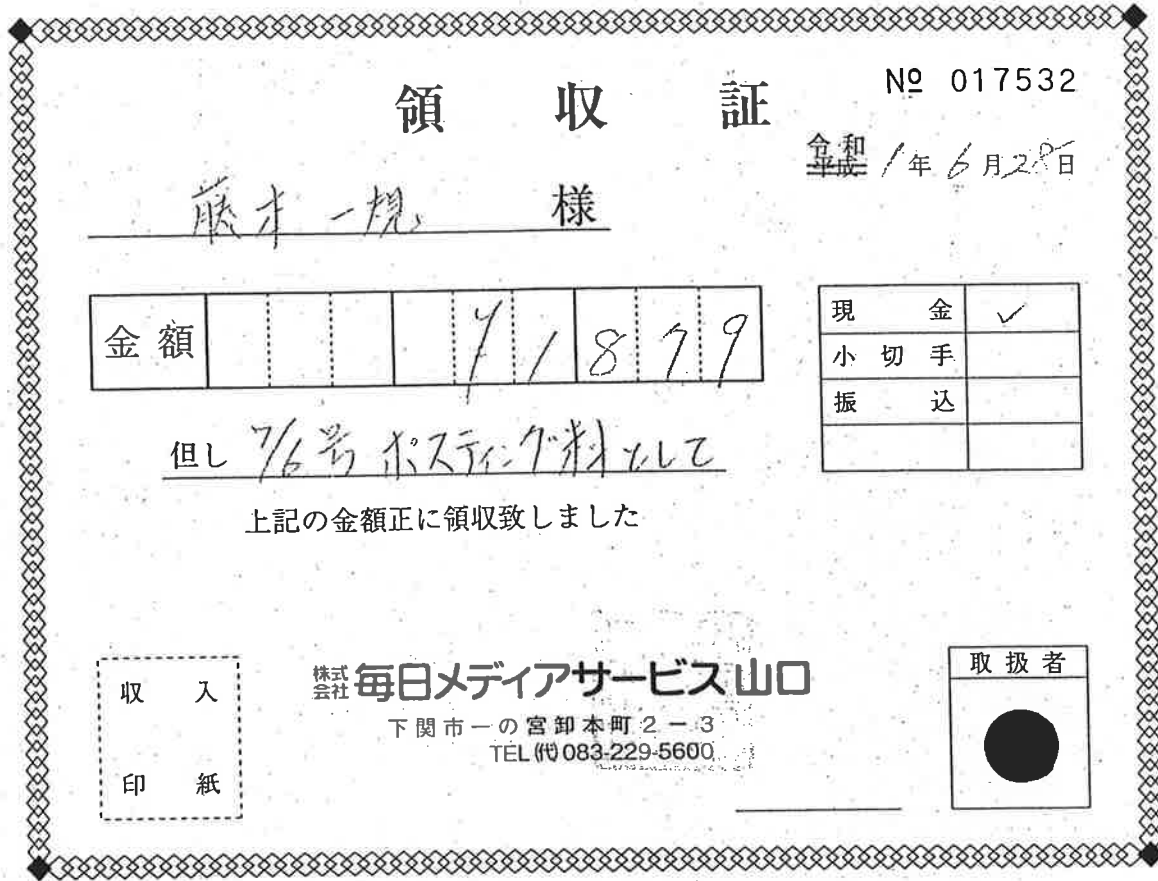 領収証
№ 017532
令和
平成 1年6月28日
藤本 一規 様
金額 71879
現金 ✓
小切手
振込
但し 7/6号 ポスティング料として
上記の金額正に領収致しました
収入
印紙
株式会社 毎日メディアサービス山口
下関市一の宮卸本町2-3
TEL(代)083-229-5600
取扱者